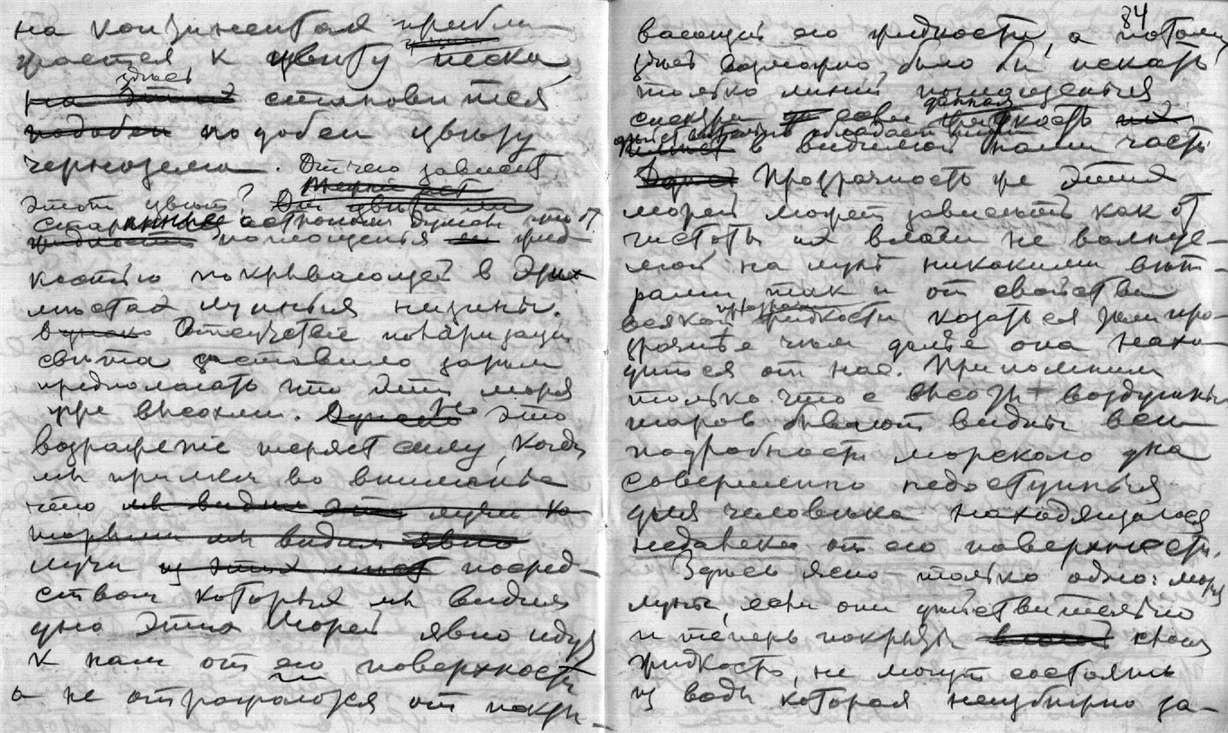 на континентах прибли
жается к цвету песка,
здесь
на этих становится
подобен подобен цвету
чернозема. Отчего зависит
этот цвет?
астрономы думали что от
поглощенья жид-
костью покрывающей в этих
местах лунныя низины.
Отсутствие поляризации
света заставило затем
предполагать что эти моря
уже высохли. Но это
возражение теряет силу, когда
мы примем во внимание
что мы видим эти лучи ко
торыми мы видим явно
лучи из этих мест посред-
ством которых мы видим
дно этих морей явно идут
к нам от его поверхности
а не отражаются от покры-
84
вающей его жидкости, а потому
здесь возможно было бы искать
только линий поглощенья
данная
спектра если жидкость
в видимой нами части
Прозрачность же этих
морей может зависеть как от
чистоты их влаги не волнуе-
мой на луне никакими вет-
рами так и от свойства
всякой жидкости казаться тем про-
зрачнее чем далее она нахо-
дится от нас. Припомним
только что с высоты воздушных
шаров бывают видны все
подробности морского дна
совершенно недоступныя
для человека находящагося
недалеко от его поверхности.
Здесь ясно только одно: моря
луны, если они действительно
и теперь покрыты
жидкость, не могут состоять
из воды которая неизбежно за-